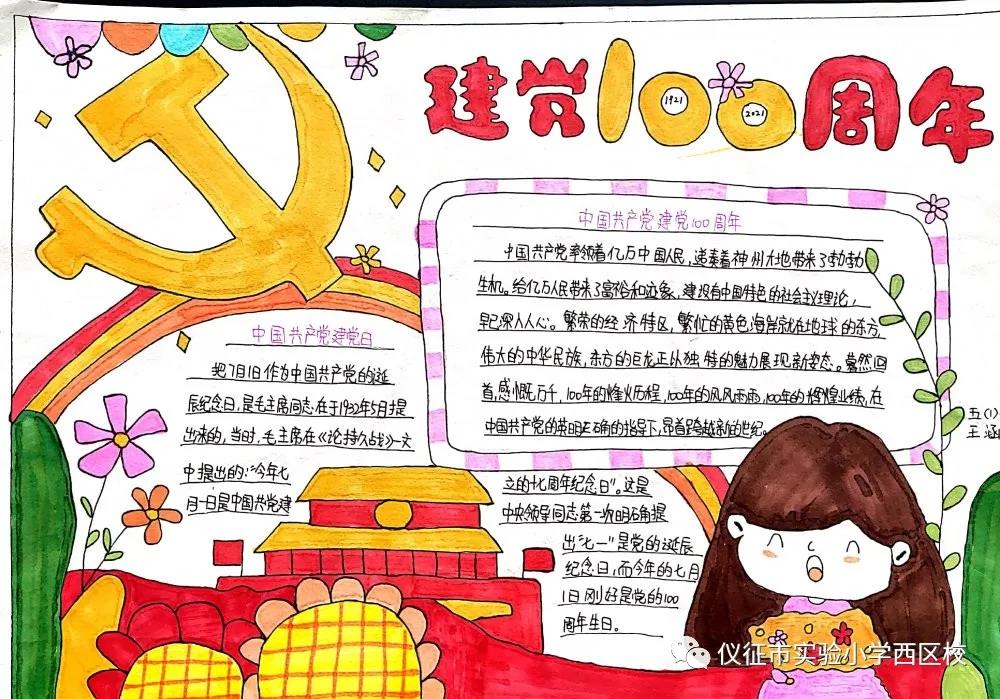 建党100周年
1921
2021
中国共产党建党100周年
中国共产党牵领着亿万中国人民,递奏着神州大地带来了勃勃
生机。给亿万人民带来了富裕和迹象,建设有中国特色的社会主义理论,
早已深入人心。繁荣的经济特区,繁忙的黄色海岸就在地球的东方,
伟大的中华民族,东方的巨龙正从独特的魅力展现新姿态。蓦然回
首,感慨万千,100年的烽火历程,100年的风风雨雨,100年的辉煌业绩,在
中国共产党的英明正确的指导下,昂首跨越新的世纪。
中国共产党建党日
把7月1日作为中国共产党的诞
辰纪念日,是毛主席同志,在于1938年5月提
出来的,当时,毛主席在《论持久战》一文
中提出的:“今年七
月一日是中国共党建
立的十七周年纪念日”。这是
中央领导同志第一次明确提
出“七一”是党的诞辰
纪念日,而今年的七月
1日刚好是党的100
周年生日。
五(1)
王涵
仪征市实验小学西区校